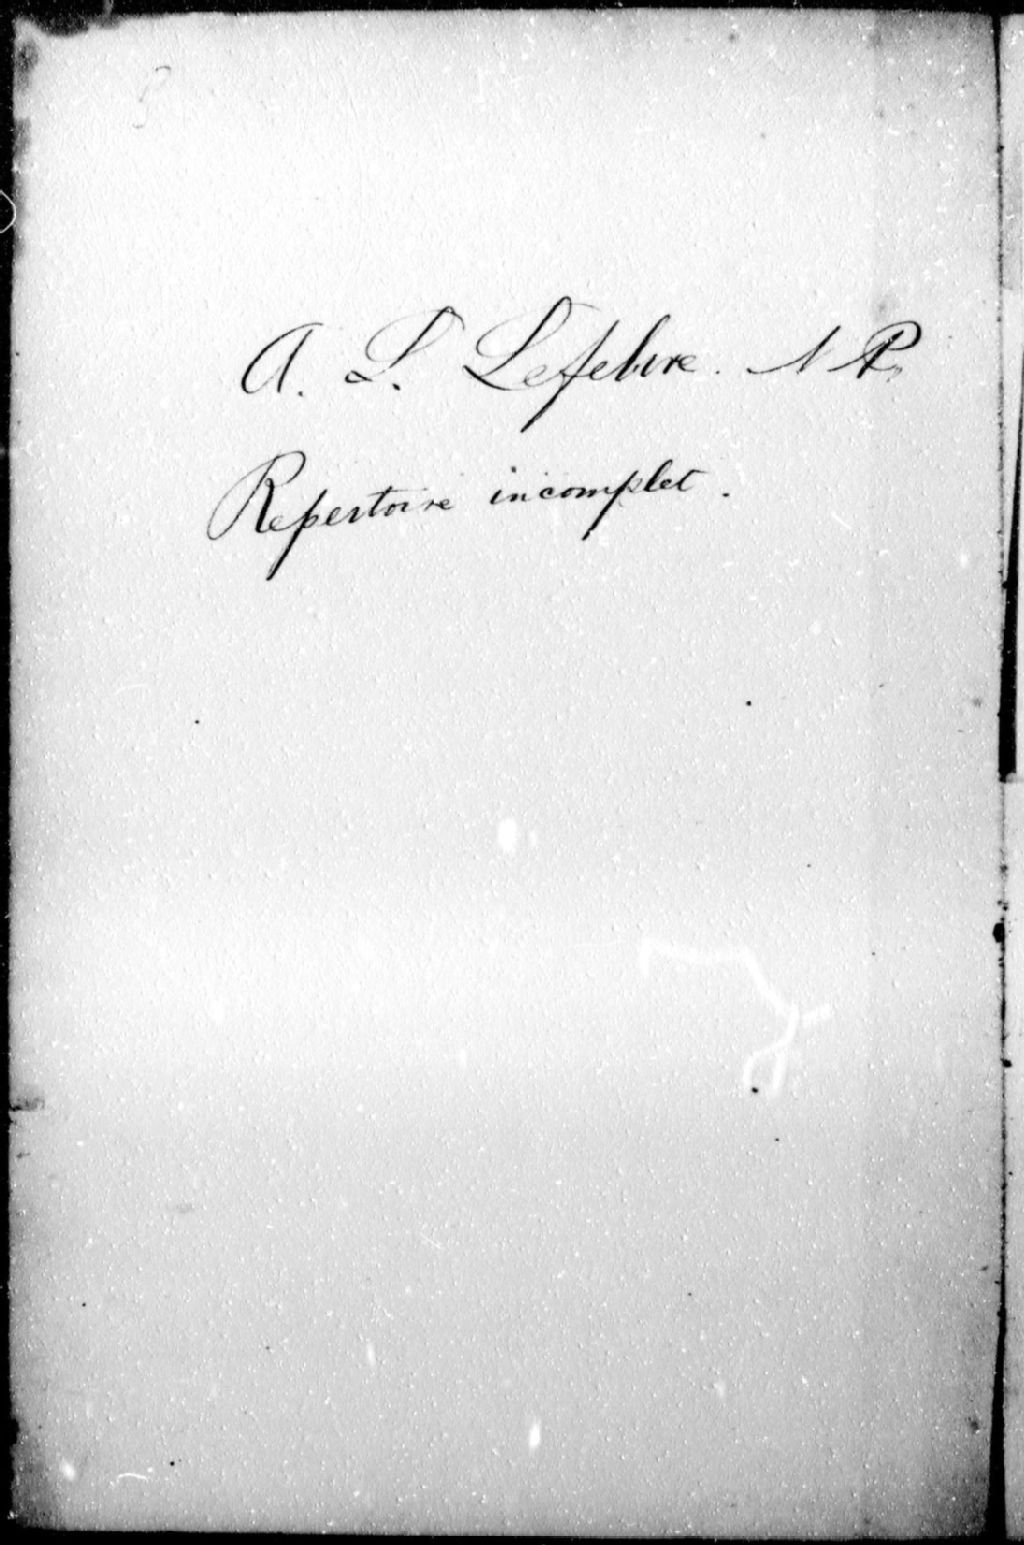 A. L. Lefebvre. N P.
Repertoire incomplet.